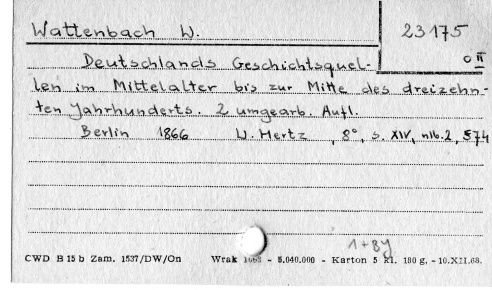 Wattenbach W. 23175
o II
Deutschlands Geschichtsquel-
len im Mittelalter bis zur Mitte des dreizehn-
ten Jahrhunderts. 2 umgearb. Aufl.
Berlin 1866 W. Hertz, 8°, s. XIV, nlb. 2, 574
1+By
CWD B 15 b Zam. 1537/DW/On Wrak - 5.040.000 - Karton 5 kl. 180 g. - 10.XII.68.